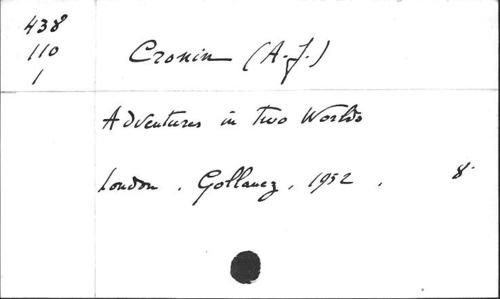 438
110
1
Cronin (A.J.)
Adventures in Two Worlds
London. Gollancz, 1952. 8.